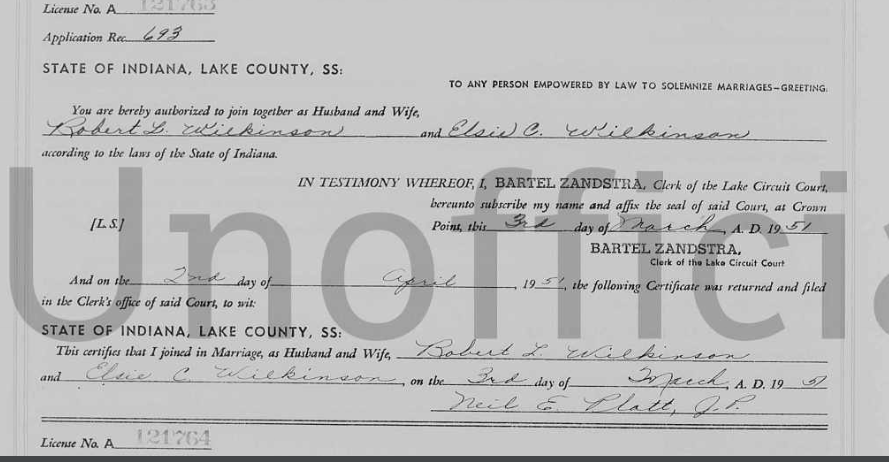 License No. A 121763
Application Rec. 693
STATE OF INDIANA, LAKE COUNTY, SS:
TO ANY PERSON EMPOWERED BY LAW TO SOLEMNIZE MARRIAGES—GREETING.
You are hereby authorized to join together as Husband and Wife,
Robert L. Wilkinson and Elsie C. Wilkinson
according to the laws of the State of Indiana.
IN TESTIMONY WHEREOF, I, BARTEL ZANDSTRA, Clerk of the Lake Circuit Court,
hereunto subscribe my name and affix the seal of said Court, at Crown
[L.S.] Point, this 3rd day of March, A. D. 1951
BARTEL ZANDSTRA,
Clerk of the Lake Circuit Court
And on the 2nd day of April, 1951, the following Certificate was returned and filed
in the Clerk's office of said Court, to wit:
STATE OF INDIANA, LAKE COUNTY, SS:
This certifies that I joined in Marriage, as Husband and Wife, Robert L. Wilkinson
and Elsie C. Wilkinson, on the 3rd day of March, A. D. 1951
Neil E. Platt, J.P.
License No. A 121764
Unofficia